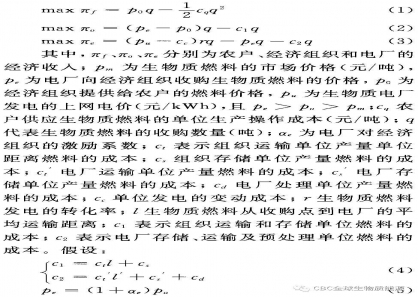 max π_f = p₀q − ½c_q q² (1)
max π_o = (p_e − p₀)q − c₁q (2)
max π_e = (p_n − c_r)rq − p_e q − c₂q (3)
其中,π_f、π_o、π_e 分别为农户、经济组织和电厂的
经济收入;p_m 为生物质燃料的市场价格(元/吨),
p_e 为电厂向经济组织收购生物质燃料的价格,p₀ 为
经济组织提供给农户的燃料价格,p_n 为生物质电厂
发电的上网电价(元/kWh),且 p_e > p_o > p_m;c_q 农
户供应生物质燃料的单位生产操作成本(元/吨);q
代表生物质燃料的收购数量(吨);α_e 为电厂对经济
组织的激励系数;c_t 表示组织运输单位产量单位
距离燃料的成本;c_s 组织存储单位产量燃料的成
本;c_t′ 电厂运输单位产量燃料的成本;c_s′ 电厂存
储单位产量燃料的成本;c_d 电厂处理单位产量燃
料的成本;c_r 单位发电的变动成本;r 生物质燃料
发电的转化率;l 生物质燃料从收购点到电厂的平
均运输距离;c₁ 表示组织运输和存储单位燃料的
成本;c₂ 表示电厂存储、运输及预处理单位燃料的
成本。假设:
c₁ = c_t l + c_s
c₂ = c_t′l + c_s′ + c_d (4)
p_e = (1 + α_e)p_m (5)